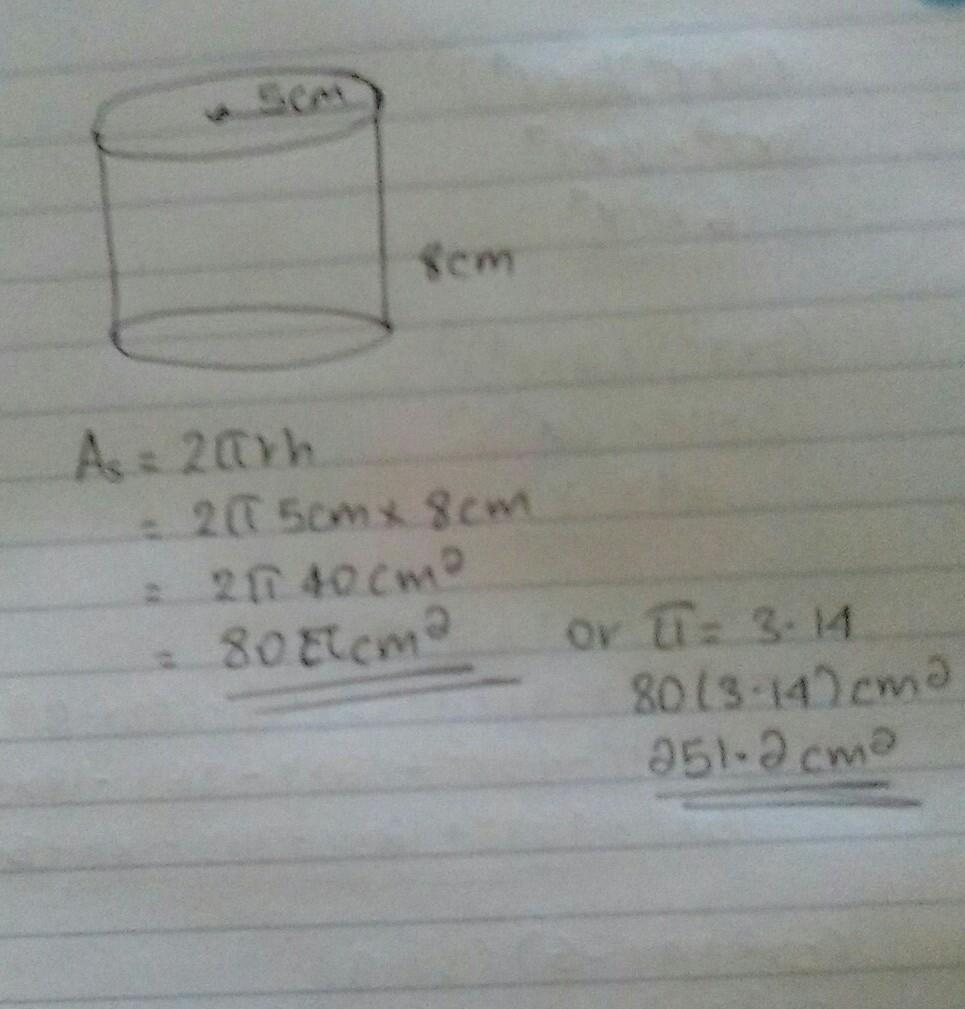 5cm
8cm
As = 2πrh
= 2π 5cm x 8cm
= 2π 40cm²
= 80πcm² or π = 3.14
80(3.14)cm²
251.2cm²